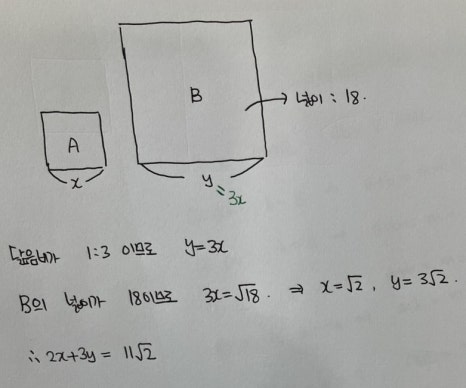 A
B
넓이 : 18.
x
y
=3x
닮음비가 1:3 이므로 y=3x
B의 넓이가 18이므로 3x=√18. ⇒ x=√2, y=3√2.
∴ 2x+3y = 11√2